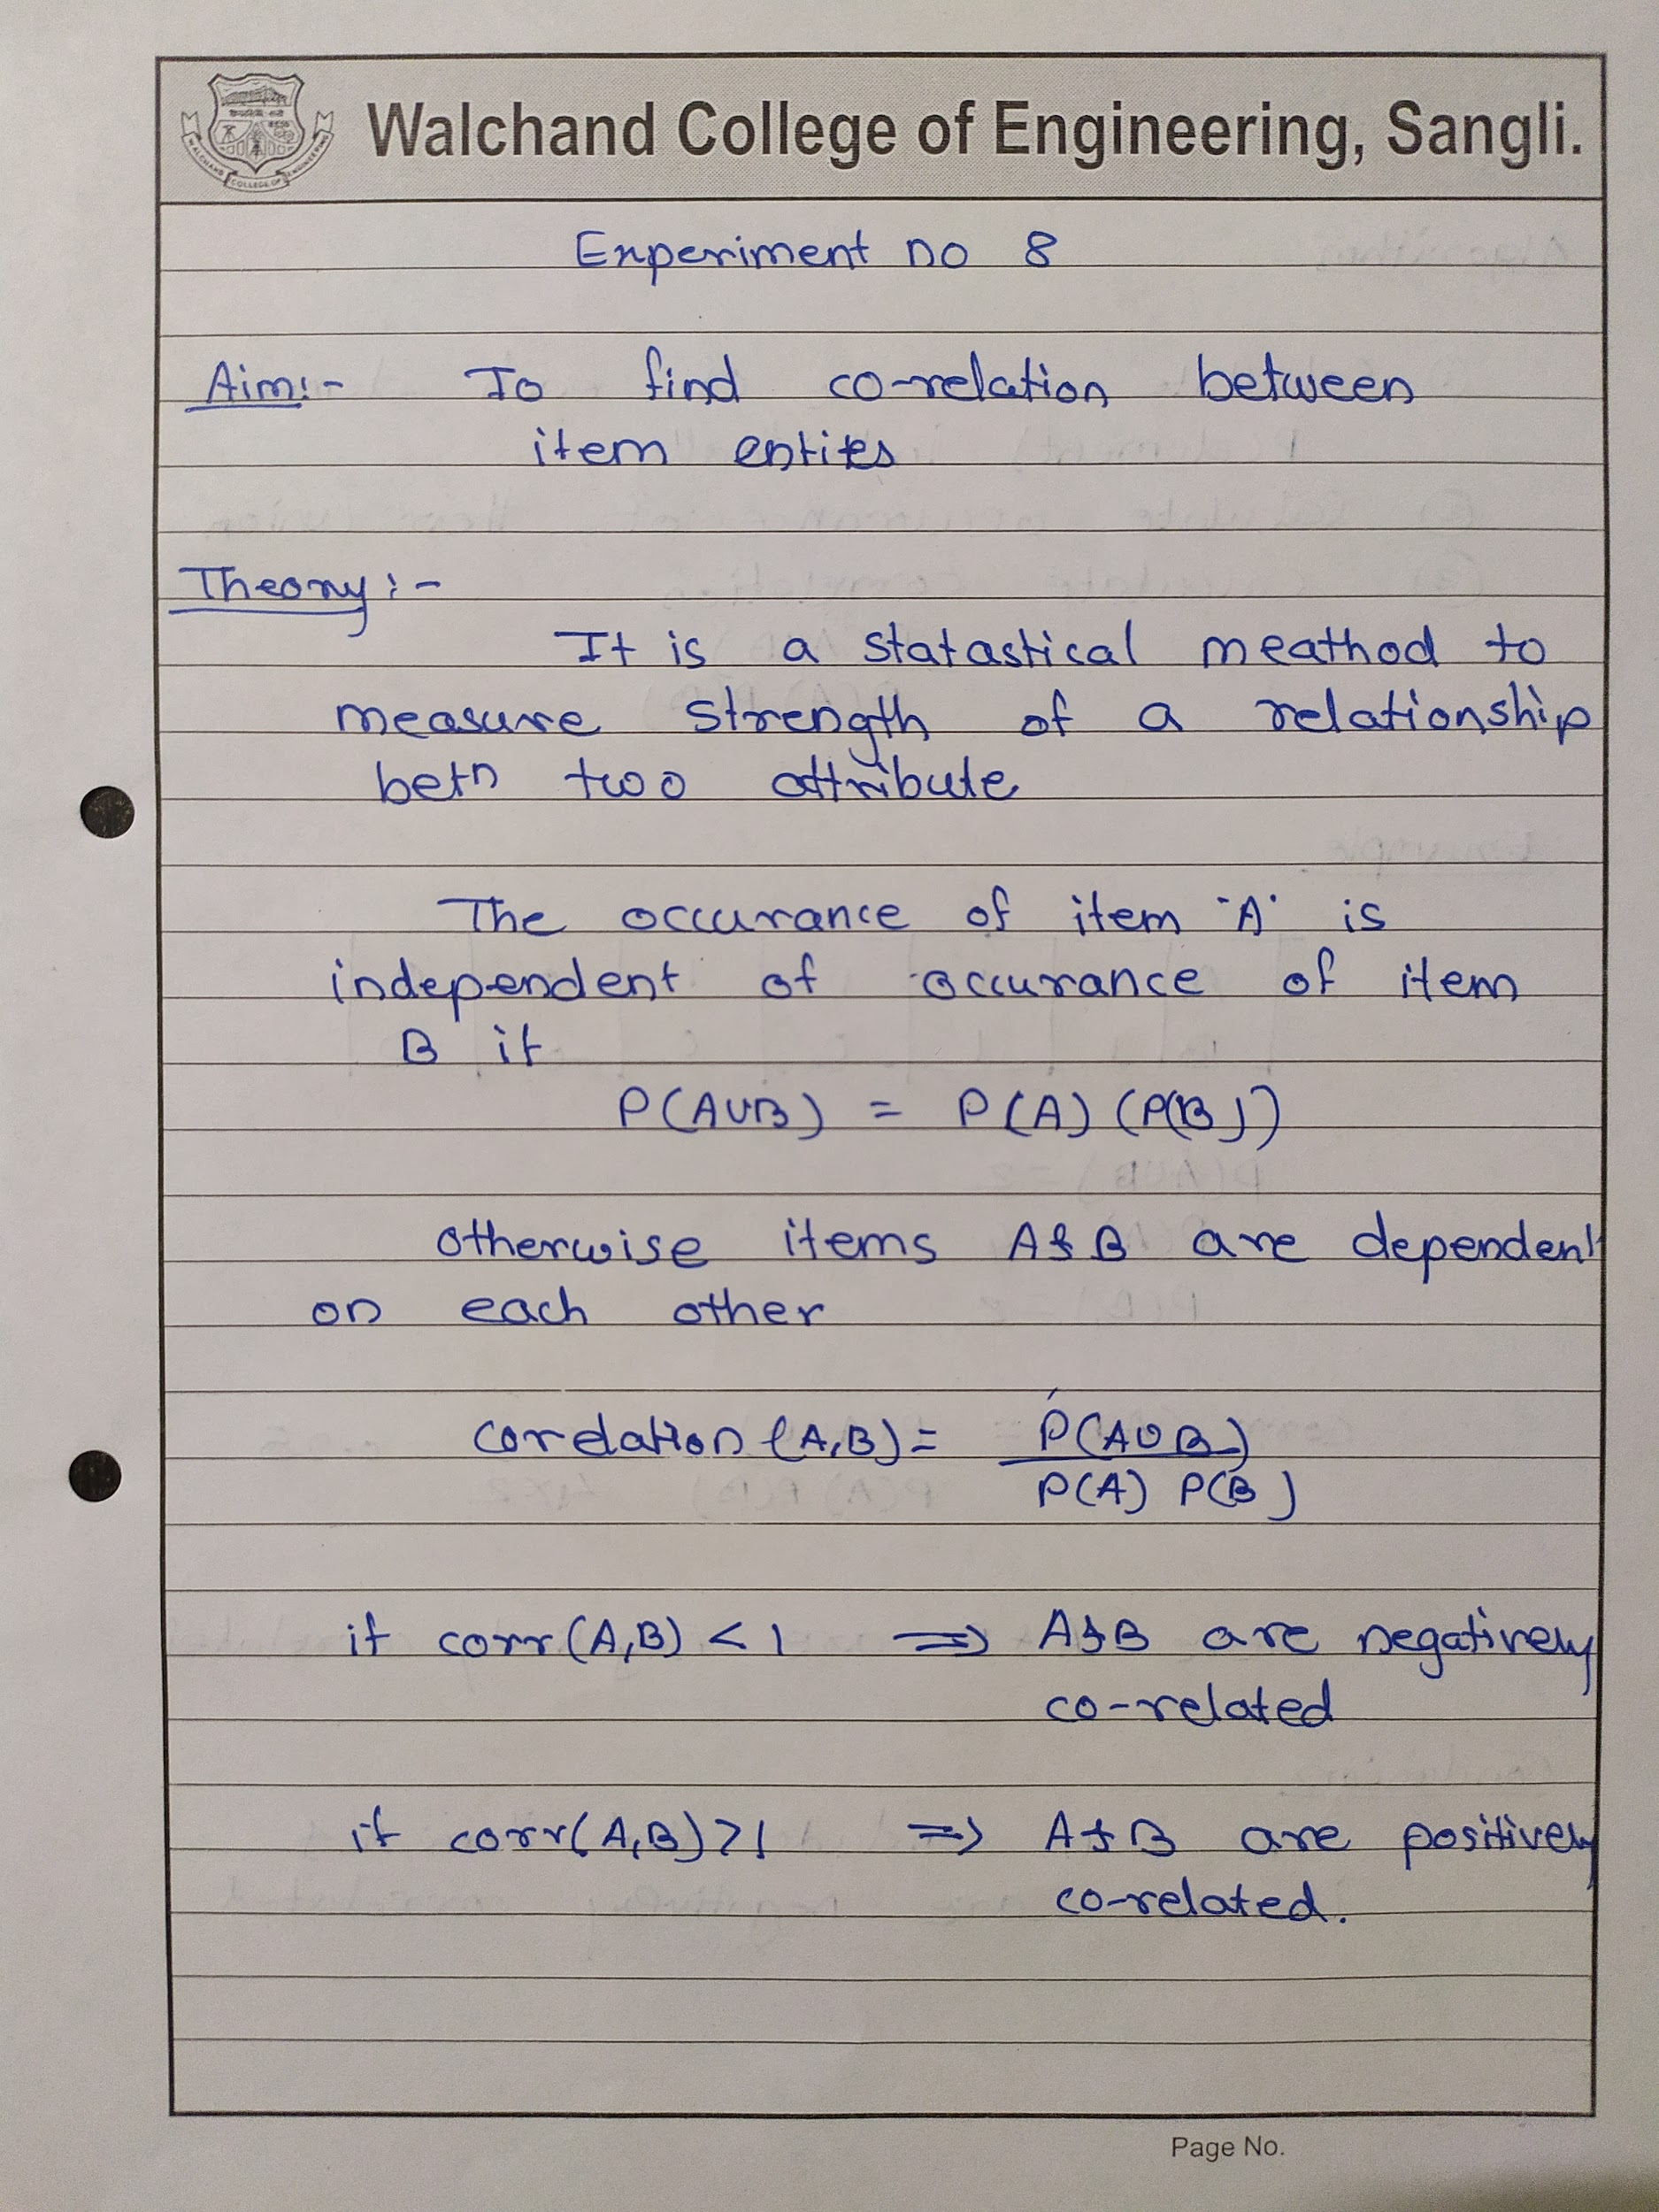 Walchand College of Engineering, Sangli.
WALCHAND COLLEGE OF ENGINEERING
Experiment no 8
Aim:- To find co-relation between
item enties
Theory:-
It is a statastical meathod to
measure strength of a relationship
betn two attribute
The occurance of item 'A' is
independent of occurance of item
B if
P(A∪B) = P(A) (P(B))
otherwise items A & B are dependent
on each other
correlation (A,B) = P(A∪B)
P(A) P(B)
if corr(A,B) < 1 => A & B are negatively
co-related
if corr(A,B) > 1 => A & B are positively
co-related.
Page No.